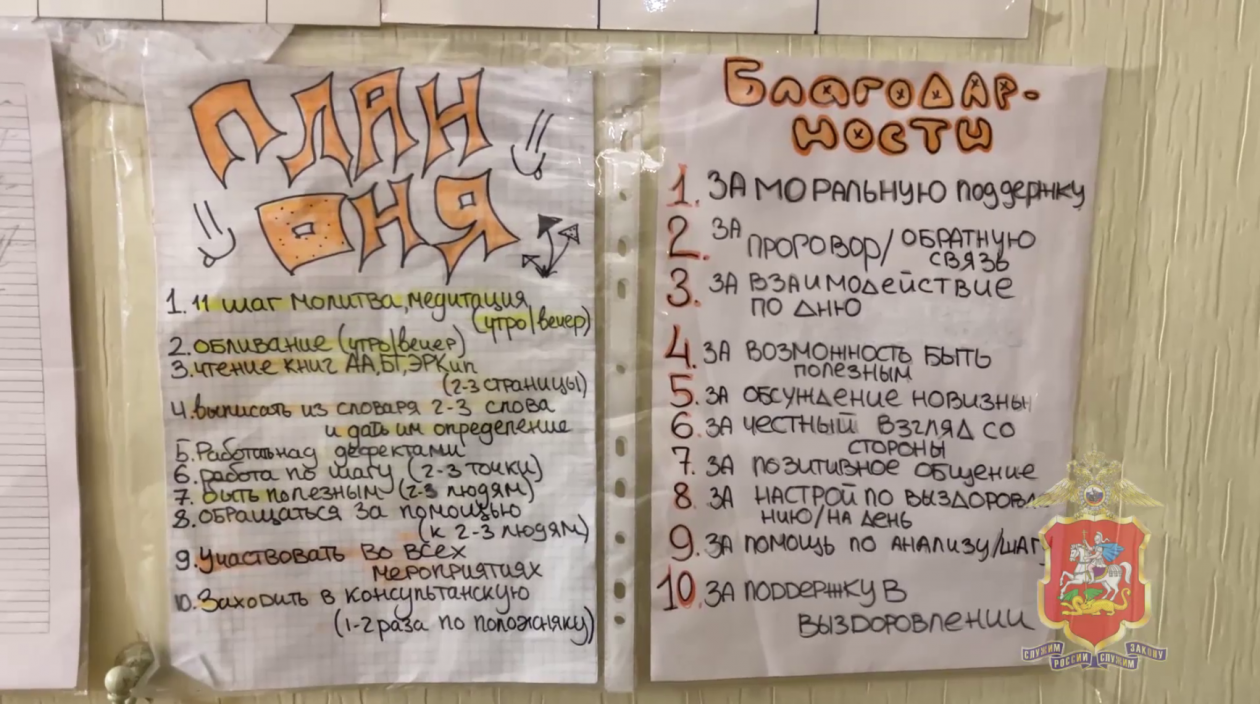 ПЛАН
ДНЯ
1. 11 шаг молитва, медитация
(утро/вечер)
2. обливание (утро/вечер)
3. чтение книг АА, БТ, ЭРКип
(2-3 страницы)
4. выписать из словаря 2-3 слова
и дать им определение
5. Работа над дефектами
6. работа по шагу (2-3 точки)
7. быть полезным (2-3 людям)
8. обращаться за помощью
(к 2-3 людям)
9. Участвовать во всех
мероприятиях
10. Заходить в консультанскую
(1-2 раза по положняку)
БЛАГОДАР-
НОСТИ
1. ЗА МОРАЛЬНУЮ поддержку
2. ЗА ПРОГОВОР/ОБРАТНУЮ
СВЯЗЬ
3. ЗА ВЗАИМОДЕЙСТВИЕ
ПО ДНЮ
4. ЗА ВОЗМОНОСТЬ БЫТЬ
ПОЛЕЗНЫМ
5. ЗА ОБСУЖДЕНИЕ НОВИЗНЫ
6. ЗА ЧЕСТНЫЙ ВЗГЛЯД СО
СТОРОНЫ
7. ЗА ПОЗИТИВНОЕ ОБЩЕНИЕ
8. ЗА НАСТРОЙ ПО ВЫЗДОРОВЛ
НИЮ/НА ДЕНЬ
9. ЗА ПОМОЩЬ ПО АНАЛИЗУ/ШАГ
10. ЗА ПОДДЕРЖКУ В
ВЫЗДОРОВЛЕНИИ
СЛУЖИМ РОССИИ СЛУЖИМ ЗАКОНУ